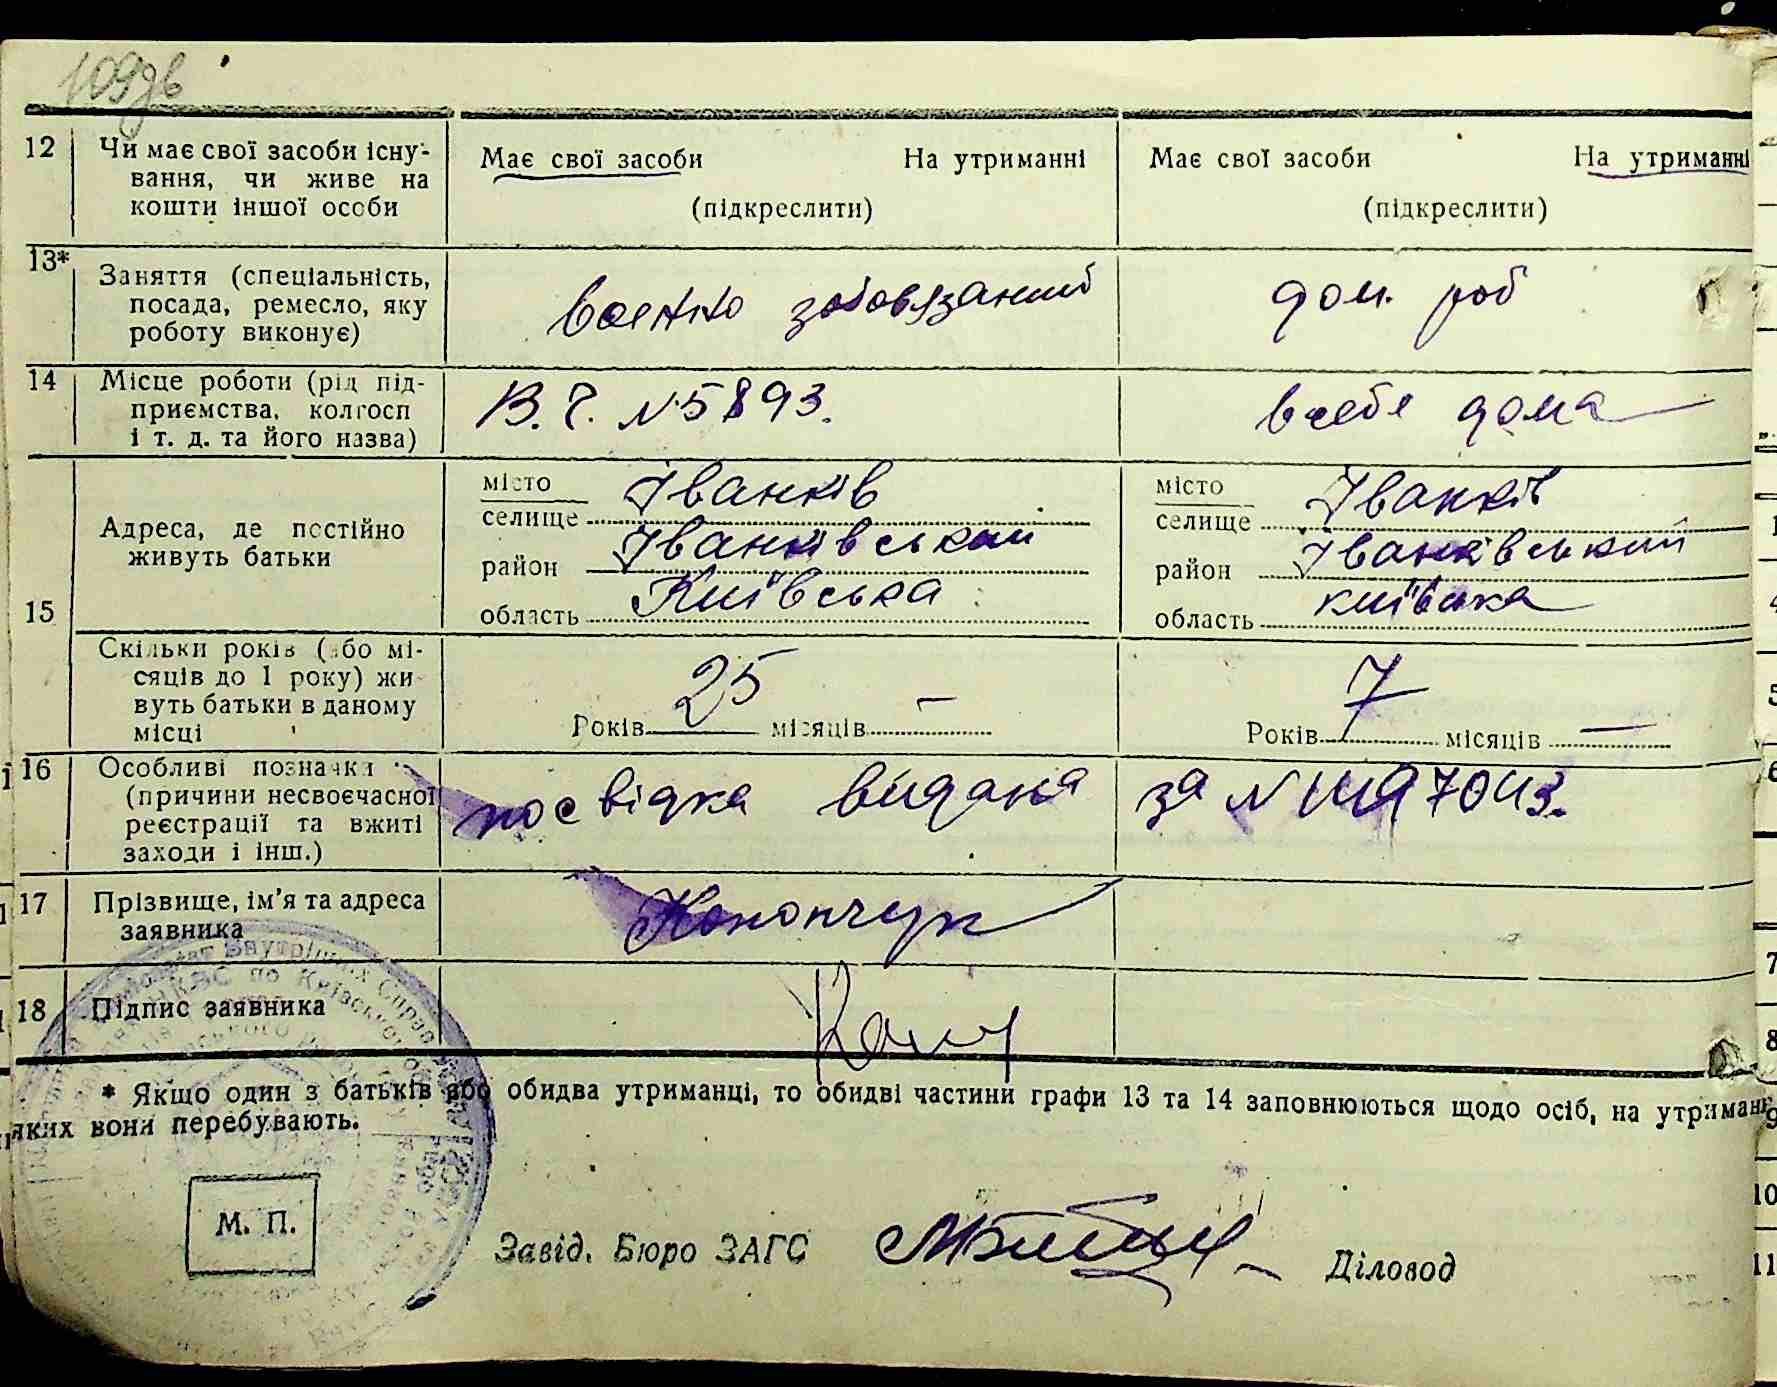 109
12 Чи має свої засоби існу-
вання, чи живе на
кошти іншої особи
Має свої засоби На утриманні
(підкреслити)
Має свої засоби На утриманні
(підкреслити)
13* Заняття (спеціальність,
посада, ремесло, яку
роботу виконує)
воєнно зобовязаний
дом. роб
14 Місце роботи (рід під-
приємства, колгосп
і т. д. та його назва)
В.Ч. №5893.
в себе дома
15 Адреса, де постійно
живуть батьки
місто
селище Іванків
район Іванківський
область Київська
місто
селище Іванків
район Іванківський
область київська
Скільки років (або мі-
сяців до 1 року) жи
вуть батьки в даному
місці
Років 25 місяців —
Років 7 місяців —
16 Особливі позначки
(причини несвоєчасної
реєстрації та вжиті
заходи і інш.)
посвідка видана за №
17 Прізвище, ім'я та адреса
заявника
Конончук
18 Підпис заявника
* Якщо один з батьків або обидва утриманці, то обидві частини графи 13 та 14 заповнюються щодо осіб, на утриман
яких вони перебувають.
М. П.
Завід. Бюро ЗАГС Діловод